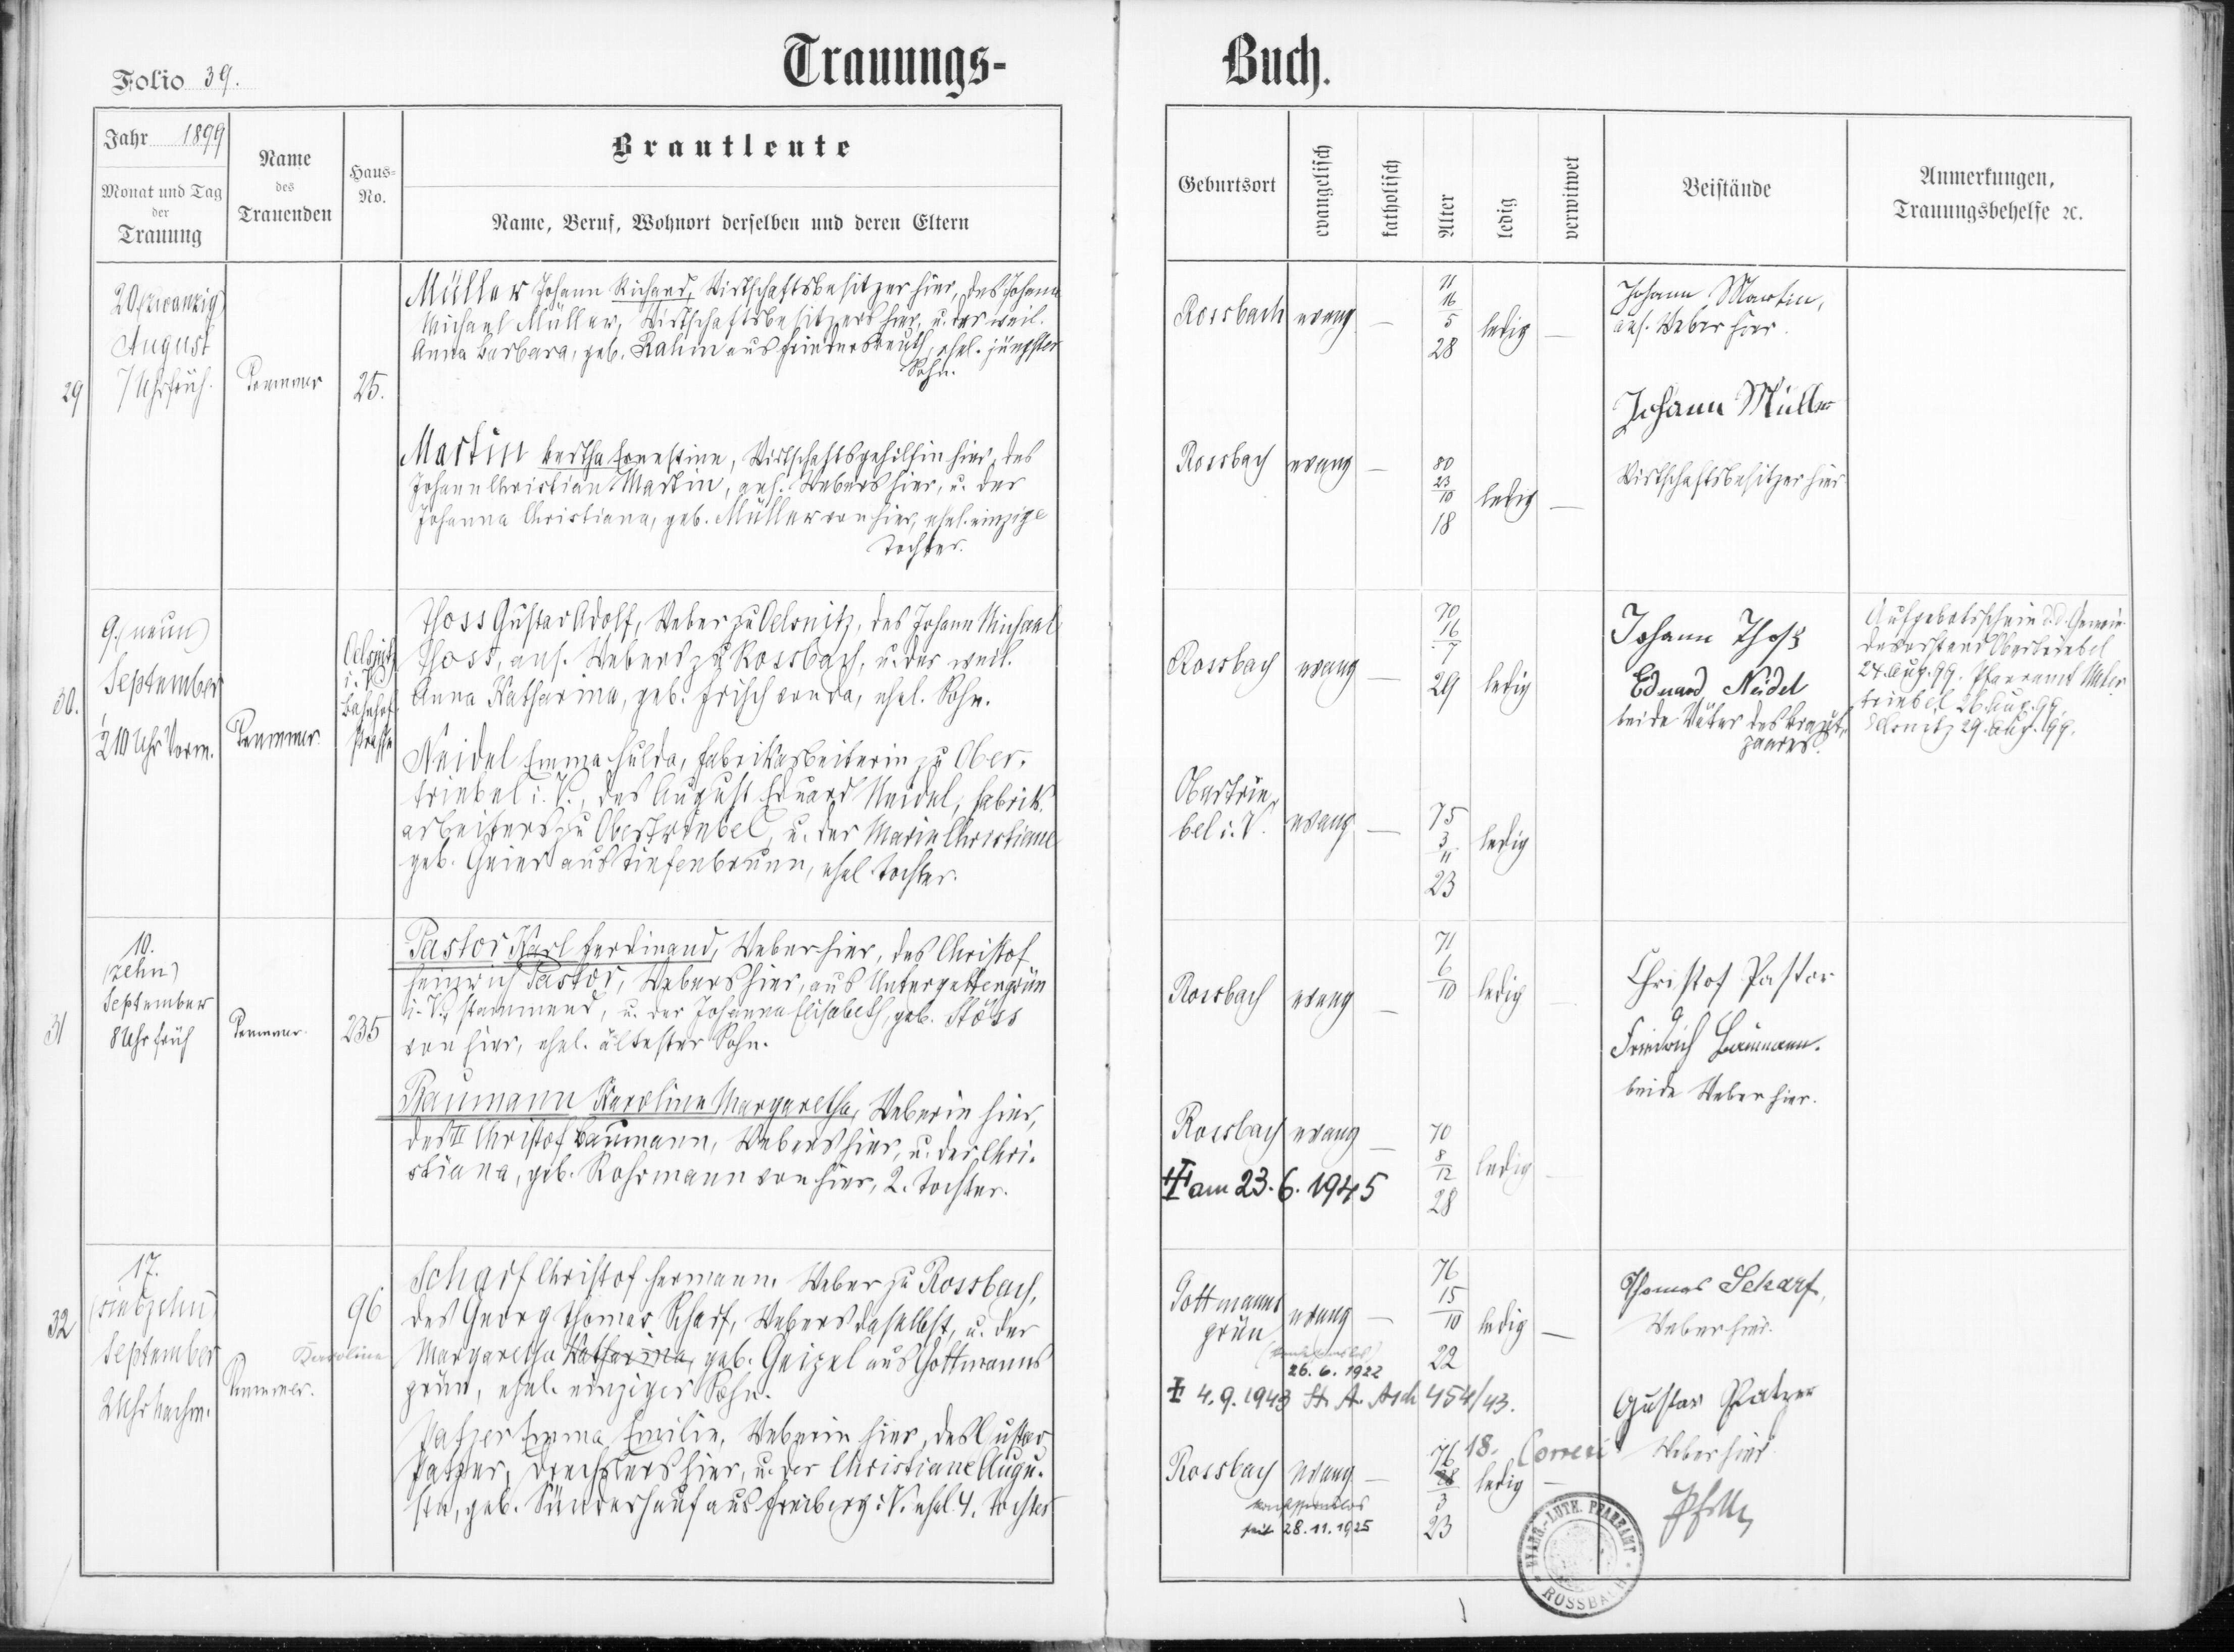 Trauungs-
Buch.
Folio 39.
Jahr 1899
Monat und Tag
der
Trauung
Name
des
Trauenden
Haus-
No.
Brautleute
Name, Beruf, Wohnort derselben und deren Eltern
Geburtsort
evangelisch
katholisch
Alter
ledig
verwitwet
Beistände
Anmerkungen,
Trauungsbehelfe ꝛc.
29
20 (zwanzig)
August
7 Uhr früh.
25.
Müller Johann Richard, Wirtschaftsbesitzer hier, des Johann
Michael Müller, Wirtschaftsbesitzers hier, u. der weil.
Anna Barbara, geb. Rahm aus Friedersreuth, ehel. jüngster
Sohn.
Martin Bertha Ernestine, Wirtschaftsgehilfin hier, des
Johann Christian Martin, ans. Webers hier, u. der
Johanna Christiana, geb. Müller von hier, ehel. einzige
Tochter.
Rossbach evang — 71 16/5 28 ledig —
Johann Martin,
ans. Weber hier.
Johann Müller
Rossbach evang — 80 23/10 18 ledig —
Wirtschaftsbesitzer hier
30.
9. (neun)
September
½10 Uhr Vorm.
Oelsnitz
i. V.
Bahnhof-
strasse
Thoss Gustav Adolf, Weber zu Oelsnitz, des Johann Michael
Thoss, ans. Webers zu Rossbach, u. der weil.
Anna Katharina, geb. Frisch von da, ehel. Sohn.
Neidel Emma Hulda, Fabrikarbeiterin zu Ober-
triebel i. V., des August Eduard Neidel, Fabriks-
arbeiters zu Obertriebel, u. der Marie Christiane
geb. Geier aus Tiefenbrunn, ehel. Tochter.
Rossbach evang — 70 16/7 29 ledig
Johann Thoß
Eduard Neidel
beide Väter des Braut-
paares.
Aufgebotsschein d. d. Gemein-
devorstand Obertriebel
24. Aug. 99. Pfarramt Unter-
triebel 26. Aug. 99,
Oelsnitz 29. Aug. 99.
Obertrie-
bel i. V. evang — 75 3/11 23 ledig
31
10.
(zehn)
September
8 Uhr früh
235
Pastor Karl Ferdinand, Weber hier, des Christof
Heinrich Pastor, Webers hier, aus Untergettengrün
i. V. stammend, u. der Johanna Elisabeth, geb. Stöss
von hier, ehel. ältester Sohn.
Baumann Karoline Margaretha, Weberin hier,
des Christof Baumann, Webers hier, u. der Chri-
stiana, geb. Rohrmann von hier, 2. Tochter.
Rossbach evang — 71 6/10 ledig
Christof Pastor
Friedrich Baumann.
beide Weber hier.
Rossbach evang — 70 8/12 28 ledig
am 23. 6. 1945
32
17.
(siebzehn)
September
2 Uhr Nachm.
96
Karoline
Scharf Christof Hermann, Weber zu Rossbach,
des Georg Thomas Scharf, Webers daselbst, u. der
Margaretha Katharina, geb. Geipel aus Gottmanns-
grün, ehel. einziger Sohn.
Patzer Emma Emilie, Weberin hier, des Gustav
Patzer, Drechslers hier, u. der Christiane Augu-
ste, geb. Sünderhauf aus Freiberg i. V. ehel. 4. Tochter
Gottmanns-
grün evang — 76 15/10 22 ledig —
26. 6. 1922
4. 9. 1943 St. A. Asch 454/43.
Thomas Scharf,
Weber hier.
Gustav Patzer
Weber hier
Rossbach evang — 76 18. 3 23 ledig —
konfessionslos
seit 28. 11. 1925
EVANG.-LUTH. PFARRAMT
ROSSBACH